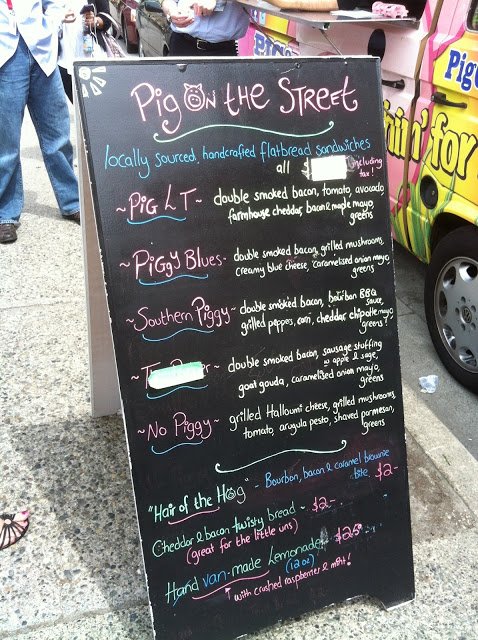 Pig on the Street
locally sourced, handcrafted flatbread sandwiches
all including
tax!
~Pig LT~ double smoked bacon, tomato, avocado
farmhouse cheddar, bacon & maple mayo,
greens
~Piggy Blues~ double smoked bacon, grilled mushrooms,
creamy blue cheese, caramelised onion mayo,
greens
~Southern Piggy~ double smoked bacon, bourbon BBQ
sauce,
grilled peppers, corn, cheddar chipotle mayo,
greens
double smoked bacon, sausage stuffing
w apple & sage,
goat gouda, caramelised onion mayo,
greens
~No Piggy~ grilled Halloumi cheese, grilled mushrooms,
tomato, arugula pesto, shaved parmesan,
greens
"Hair of the Hog" - Bourbon, bacon & caramel brownie
bite $2-
Cheddar & bacon twisty bread ~ $2-
(great for the little uns)
Hand van-made Lemonade $2.50
(12oz)
with crushed raspberries & mint!
Pig
for